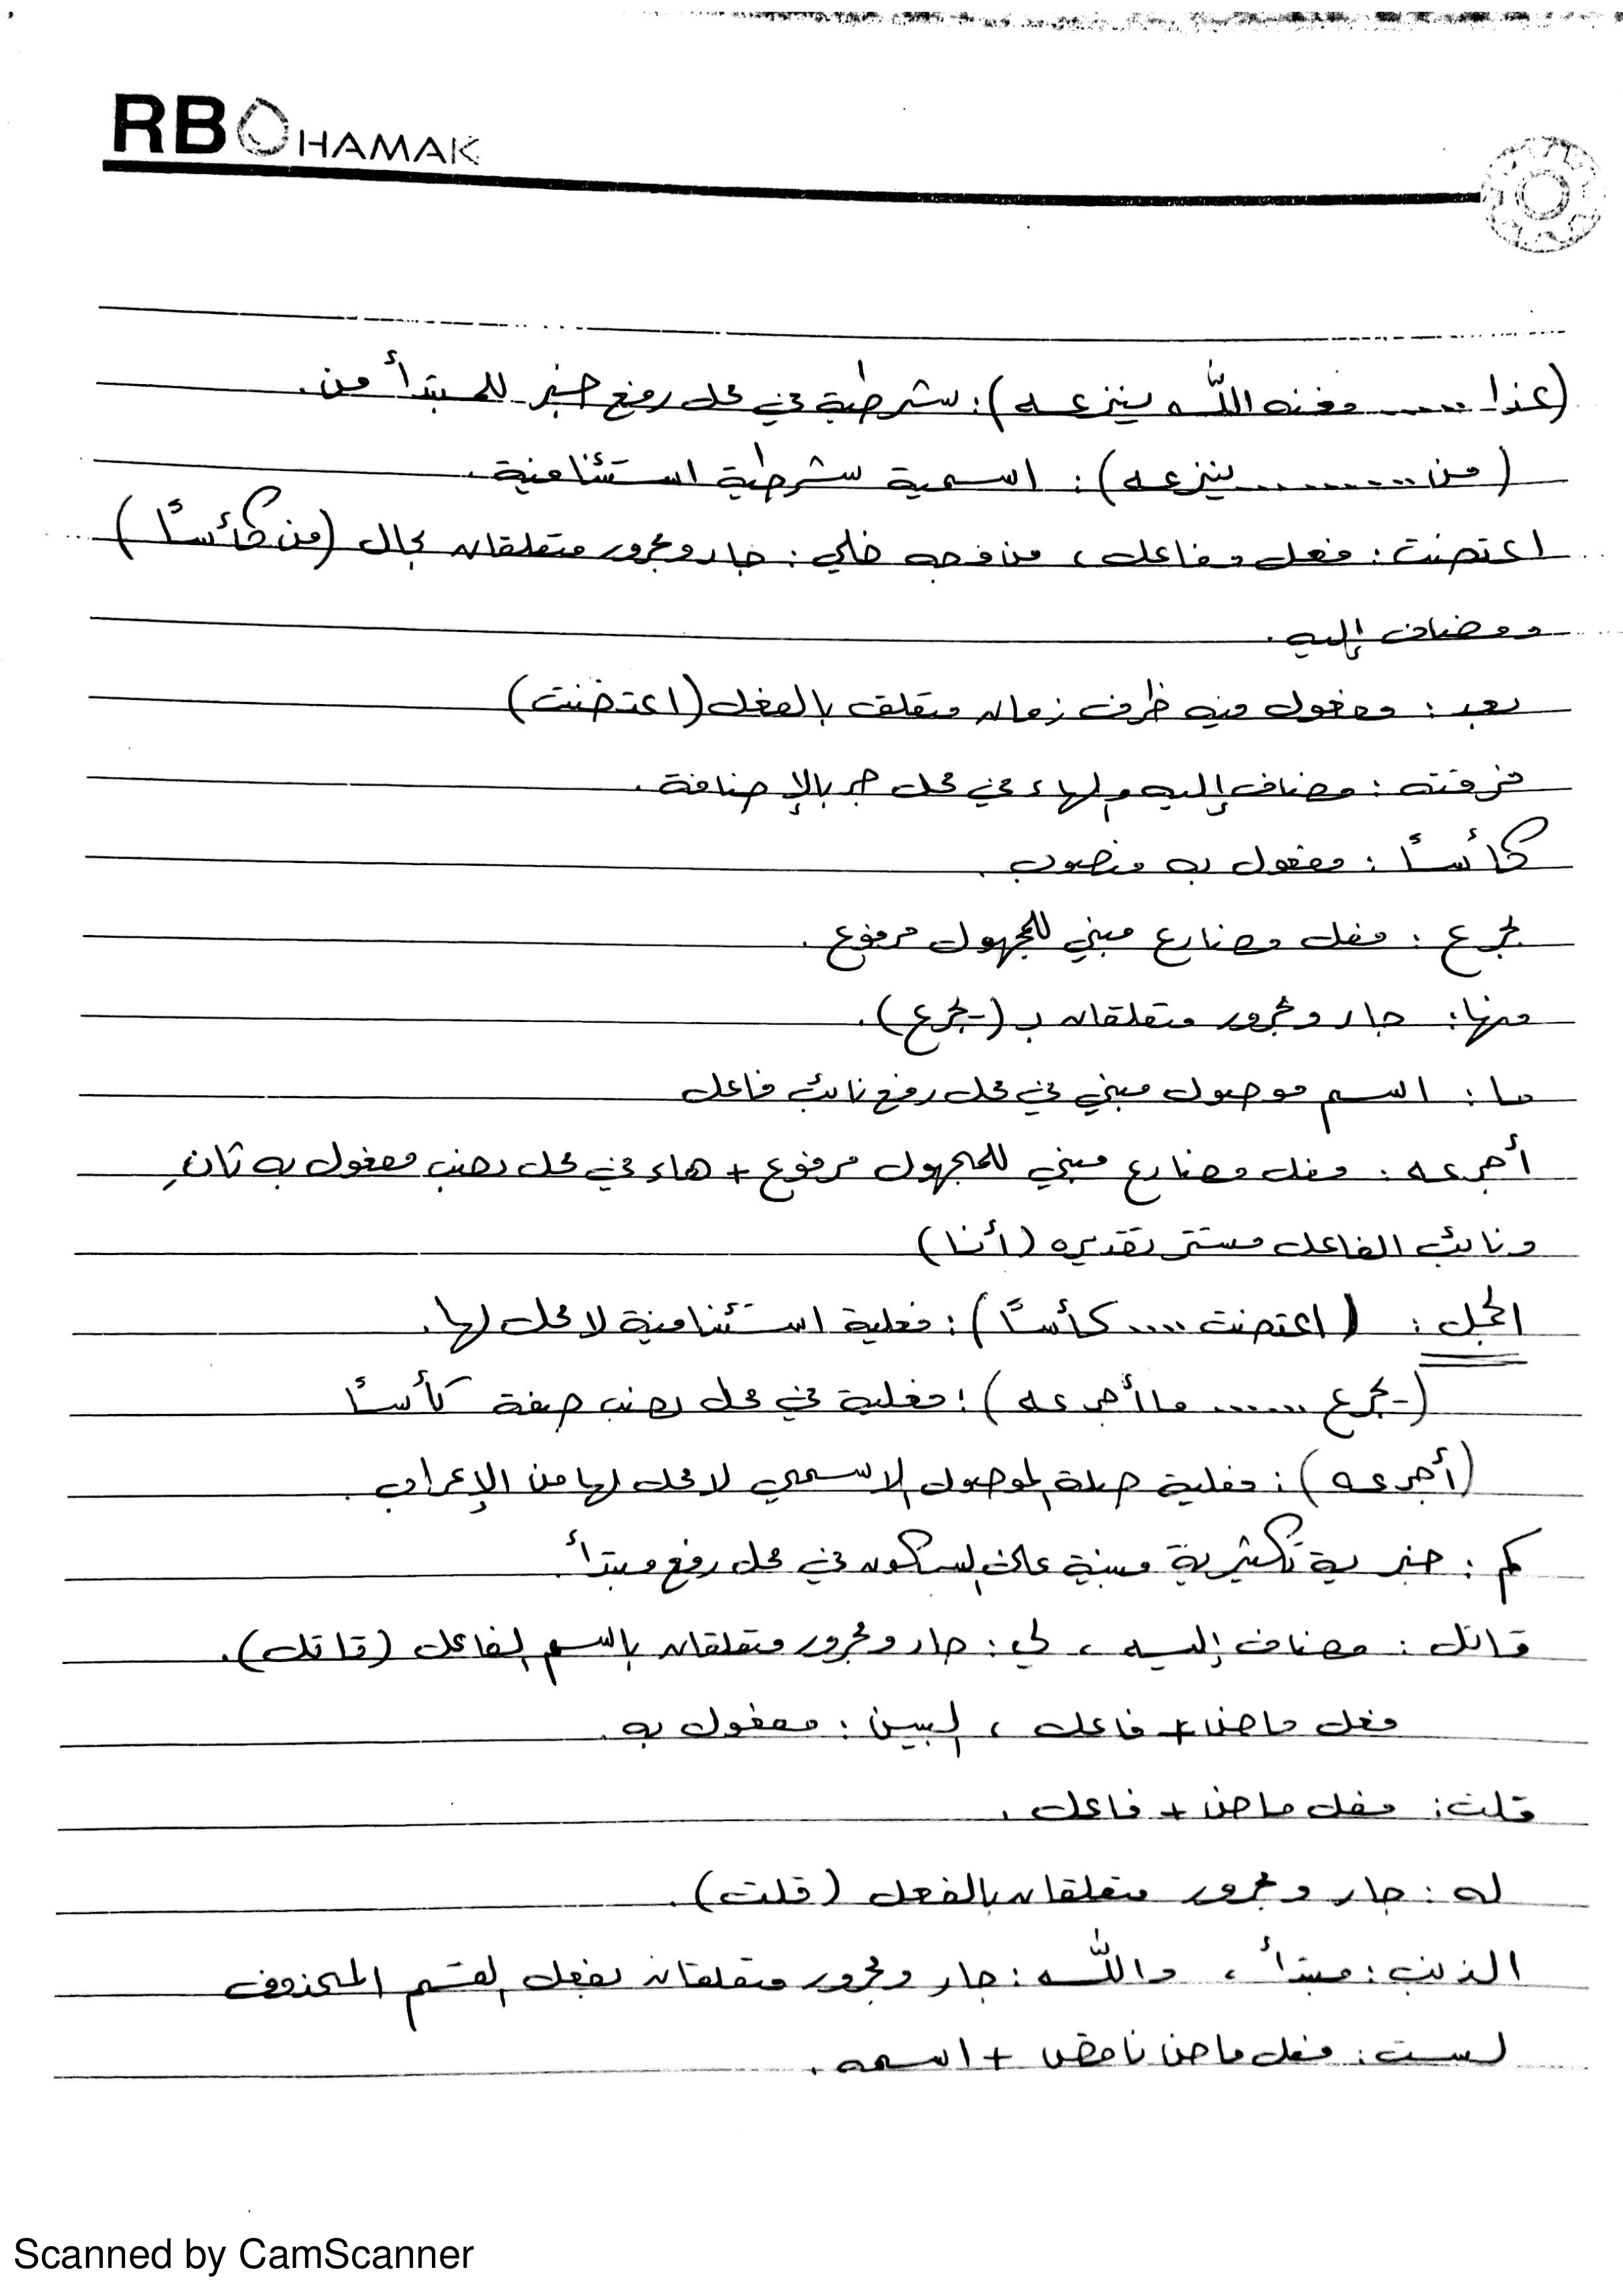 RBOHAMAK
(غدا ..... فعنه الله ينزعه): شرطية في محل رفع خبر للمبتدأ من.
(من .......... ينزعه): اسمية شرطية استئنافية.
اعتضت: فعل وفاعل، من وجه خلي: جار ومجرور متعلقان بحال (من كأسًا)
ومضاف إليه.
بعد: مفعول فيه ظرف زمان متعلق بالفعل (اعتضت)
فرقته: مضاف إليه والهاء في محل جر بالإضافة.
كأسًا: مفعول به منصوب.
يجرع: فعل مضارع مبني للمجهول مرفوع.
منها: جار ومجرور متعلقان بـ (يجرع).
ما: اسم موصول مبني في محل رفع نائب فاعل
أجرعه: فعل مضارع مبني للمجهول مرفوع + هاء في محل نصب مفعول به ثانٍ
ونائب الفاعل مستتر تقديره (أنا)
الجمل: (اعتضت .... كأسًا): فعلية استئنافية لا محل لها.
(يجرع ...... ما أجرعه): فعلية في محل نصب صفة كأسًا
(أجرعه): فعلية صلة الموصول الاسمي لا محل لها من الإعراب.
كم: خبرية تكثيرية مبنية على السكون في محل رفع مبتدأ.
قائل: مضاف إليه، لي: جار ومجرور متعلقان باسم الفاعل (قائل).
فعل ماض + فاعل، البين: مفعول به.
قلت: فعل ماض + فاعل.
له: جار ومجرور متعلقان بالفعل (قلت).
الذنب: مبتدأ، والله: جار ومجرور متعلقان بفعل القسم المحذوف
لست: فعل ماض ناقص + اسمه.
Scanned by CamScanner